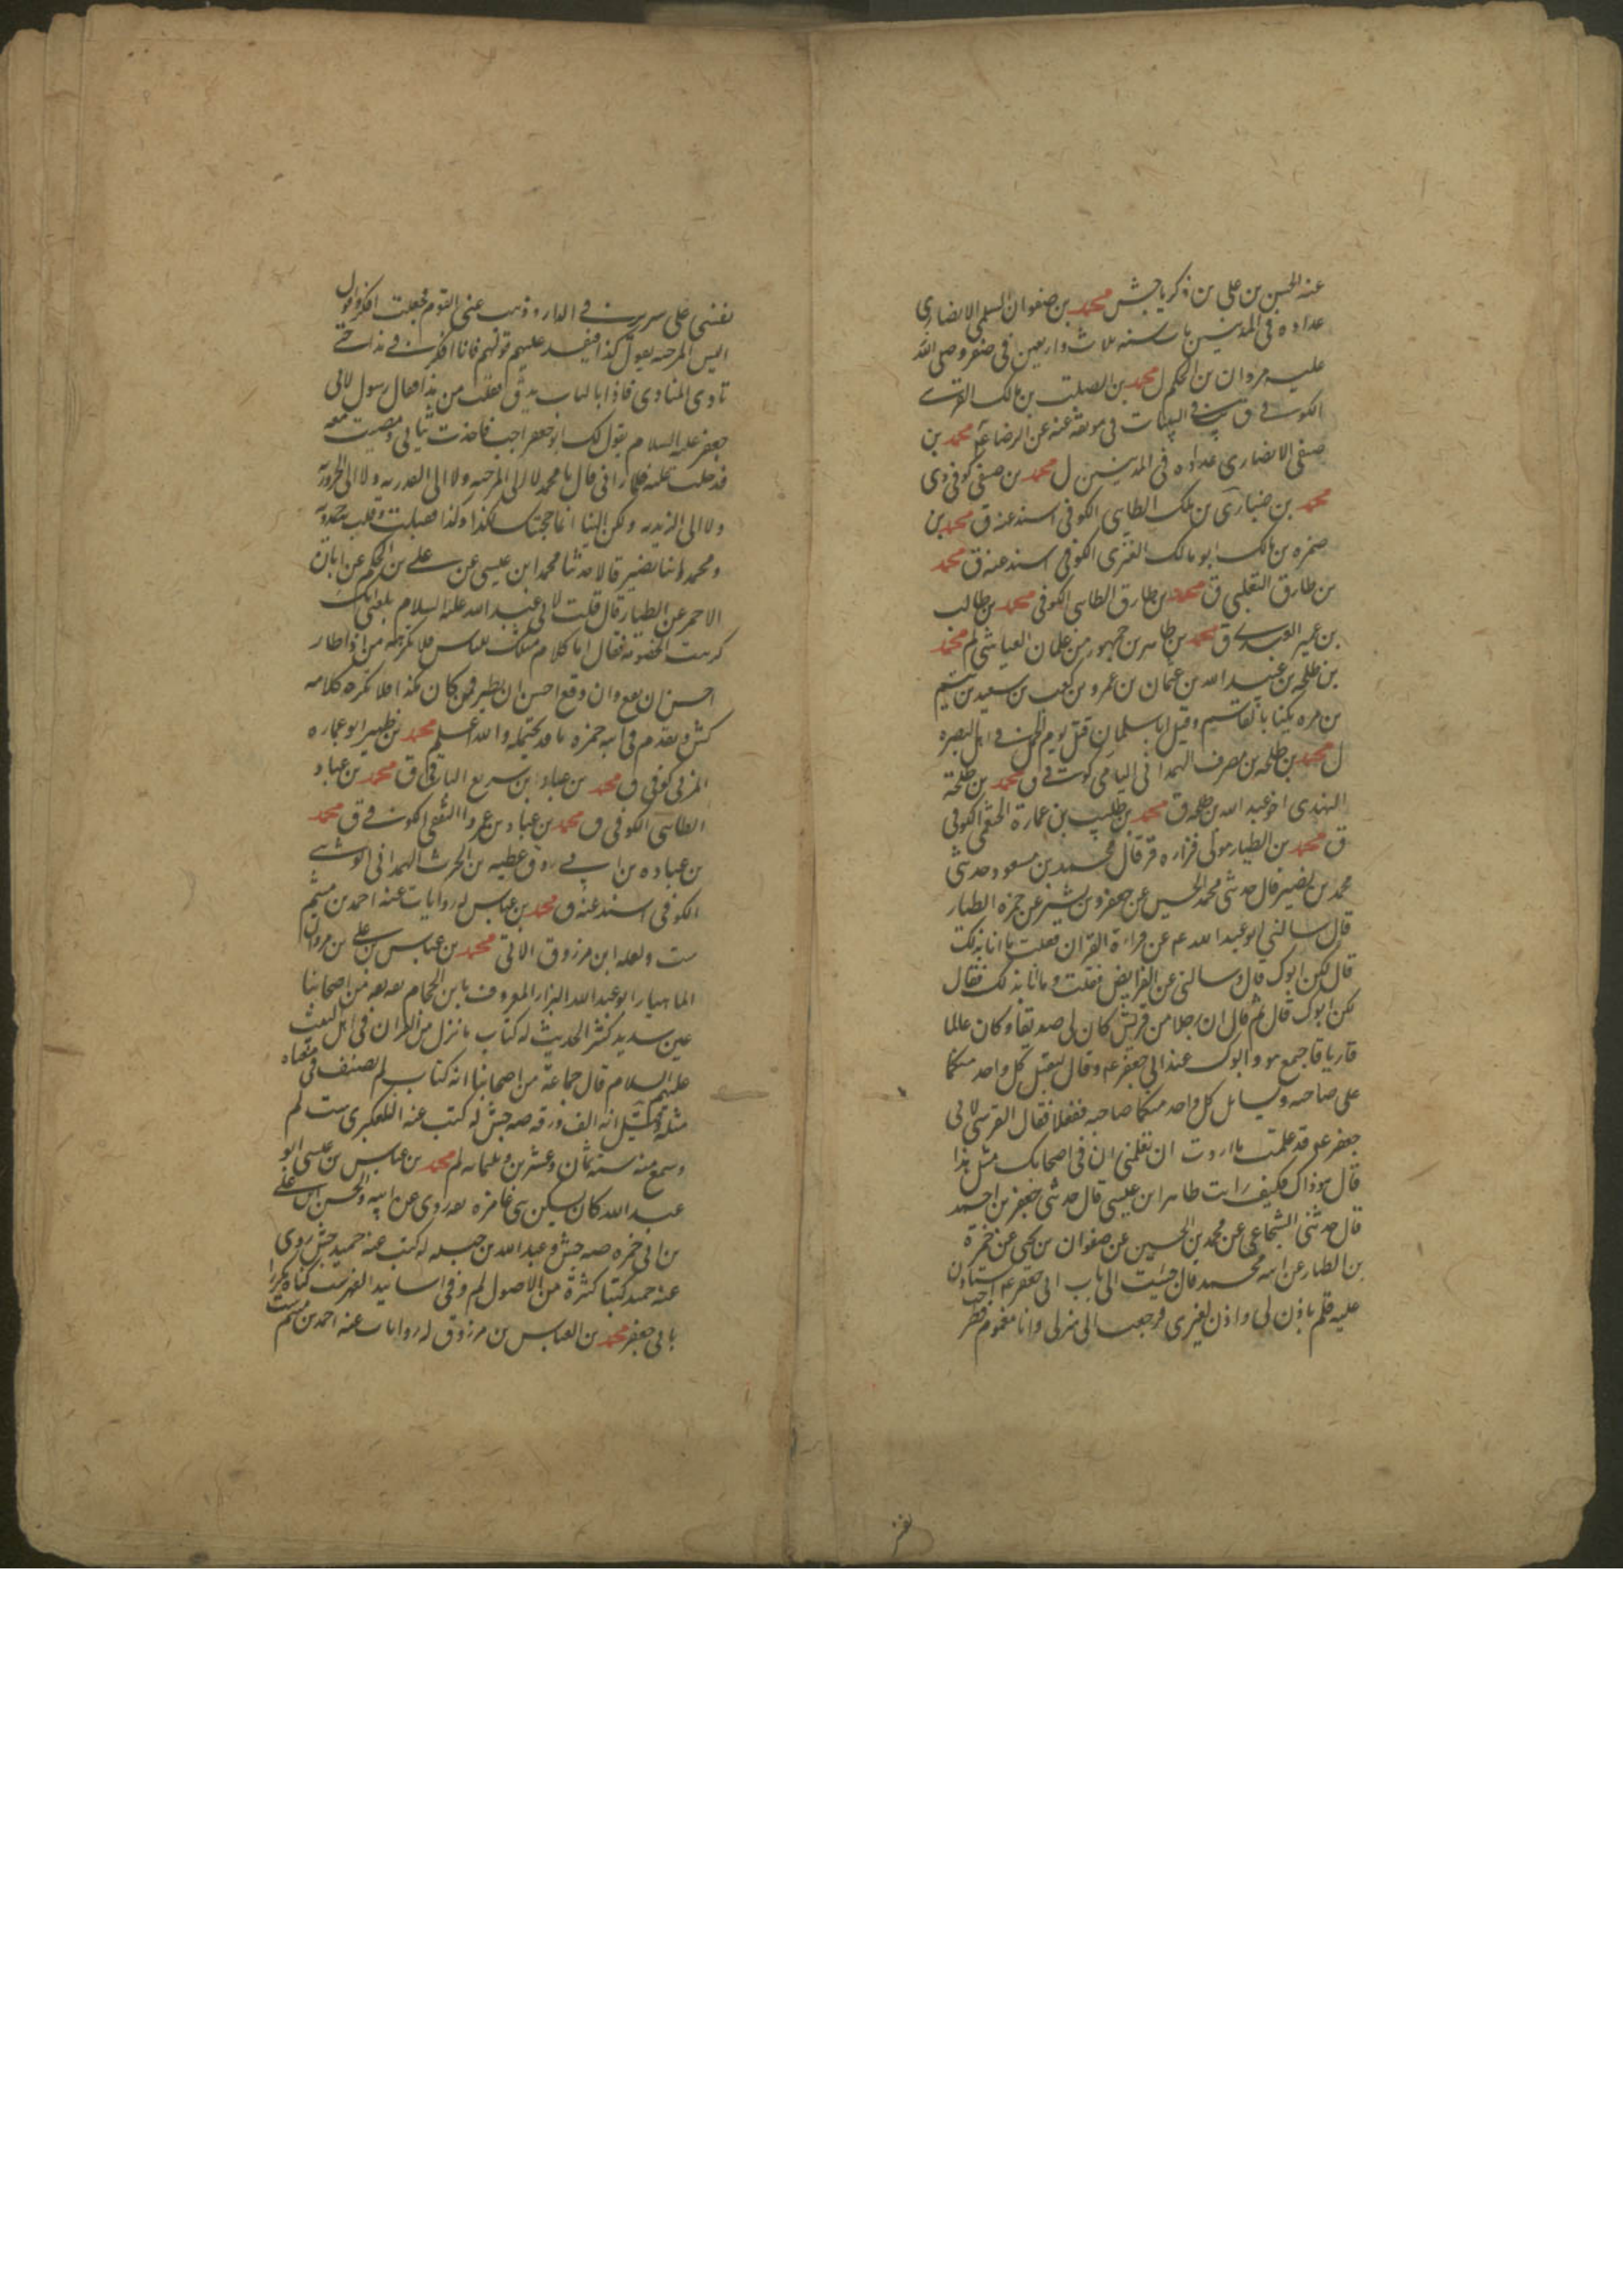 عنه الحسن بن علي بن زكريا جش محمد بن صفوان السلمي الانصاري
عداده في المدنيين مات سنه ثلاث واربعين في صفر وصلى الله
عليه مروان بن الحكم ل محمد بن الصلت بن مالك القرشي
الكوفي ق في البينات في موثقه عنه عن الرضا ع محمد بن
صيفي الانصاري عداده في المدنيين ل محمد بن صيفي كوفي دي
محمد بن ضباري بن مالك الطايي الكوفي اسند عنه ق محمد بن
ضمره بن مالك ابو مالك العنزي الكوفي اسند عنه ق محمد
بن طارق التغلبي ق محمد بن طارق الطايي الكوفي محمد بن طالب
بن عمير العبدي ق محمد بن طاهر بن جمهور من غلمان العياشي لم محمد
بن طلحه بن عبيد الله بن عثمان بن عمرو بن كعب بن سعيد بن تيم
بن مره يكنا بابالقاسيم وقيل ابا سليمان قتل يوم الجمل في اهل البصره
ل محمد بن طلحه بن مصرف الهمداني اليامي كوفي ق محمد بن طلحة
النهدي اخو عبد الله بن طلحه ق محمد بن طليب بن عمارة الخثعمي الكوفي
ق محمد بن الطيار مولى فزاره قر قال محمد بن مسعود حدثني
محمد بن نصير قال حدثني محمد الحسين عن جعفر بن بشير عن حمزه الطيار
قال سالني ابو عبد الله ع عن قراءة القران فقلت ما انا بذلك
قال لكن ابوك قال وسالني عن الفرايض فقلت وما انا بذلك فقال
لكن ابوك قال ثم قال ان رجلا من قريش كان لي صديقا وكان عالما
قاريا فاجتمع هو وابوك عند ابي جعفر ع وقال ليقبل كل واحد منكما
على صاحبه ويسايل كل واحد منكما صاحبه ففعلا فقال القرشي لابي
جعفر ع قد علمت ما اردت ان تعلمني ان في اصحابك مثل هذا
قال هو ذاك فكيف رايت طاهر ابن عيسى قال حدثني جعفر بن احمد
قال حدثني الشجاعي عن محمد بن الحسين عن صفوان بن يحيى عن حمزة
بن الطيار عن ابيه محمد قال جيت الى باب ابي جعفر ع استاذن
عليه فلم ياذن لي واذن لغيري فرجعت الى منزلي وانا مغموم فطرحت
نفسي على سرير في الدار وذهب عني النوم فجعلت افكر واقول
اليس المرجئه يقول كذا فيفسد عليهم قولهم فانا افكر في هذا حتى
نادى المنادي فاذا بالباب يدق فقلت من هذا فقال رسول لابي
جعفر عليه السلام يقول لك ابو جعفر اجب فاخذت ثيابي ومضيت معه
فدخلت عليه فلما راني قال يا محمد لا الى المرجئه ولا الى القدريه ولا الى الحروريه
ولا الى الزيديه ولكن الينا انما حجبتك لكذا وكذا فقبلت وقلت به حمدويه
ومحمد ابنا نصير قالا حدثنا محمد ابن عيسى عن علي بن الحكم عن ابان
الاحمر عن الطيار قال قلت لابي عبد الله عليه السلام بلغني انك
كرهت الخصومه فقال اما كلام مثلك للناس فلا نكرهه من اذا طار
احسن ان يقع وان وقع احسن ان يطير فمن كان هكذا فلا نكره كلامه
كش وتقدم في ابيه حمزه ما قد يحتمله والله اعلم محمد بن ظهير ابو عماره
المزني كوفي ق محمد بن عباد ابن سريع البارقي ق محمد بن عباد
الطايي الكوفي ق محمد بن عباد بن عمرو الثقفي الكوفي ق محمد
بن عباده بن ابي روق عطيه بن الحرث الهمداني الوشي
الكوفي اسند عنه ق محمد بن عباس له روايات عنه احمد بن ميثم
ست ولعله ابن مرزوق الاتي محمد بن عباس بن علي بن مروان
الماهيار ابو عبد الله البزاز المعروف بابن الحجام ثقه ثقه من اصحابنا
عين سديد كثير الحديث له كتاب ما نزل من القران في اهل البيت
عليهم السلام قال جماعة من اصحابنا انه كتاب لم يصنف في معناه
مثله وقيل انه الف ورقه صه جش له كتب عنه التلعكبري ست لم
وسمع منه سنة ثمان وعشرين وثلثمائه لم محمد بن عباس بن عيسى ابو
عبد الله كان يسكن بني غاضره ثقه روى عن ابيه والحسن بن علي
بن ابي حمزه صه جش وعبد الله بن جبله له كتب عنه حميد جش روى
عنه حميد كتبا كثيرة من الاصول لم وفي اسانيد الفهرست كناه مكررا
بابي جعفر محمد بن العباس بن مرزوق له روايات عنه احمد بن ميثم ست